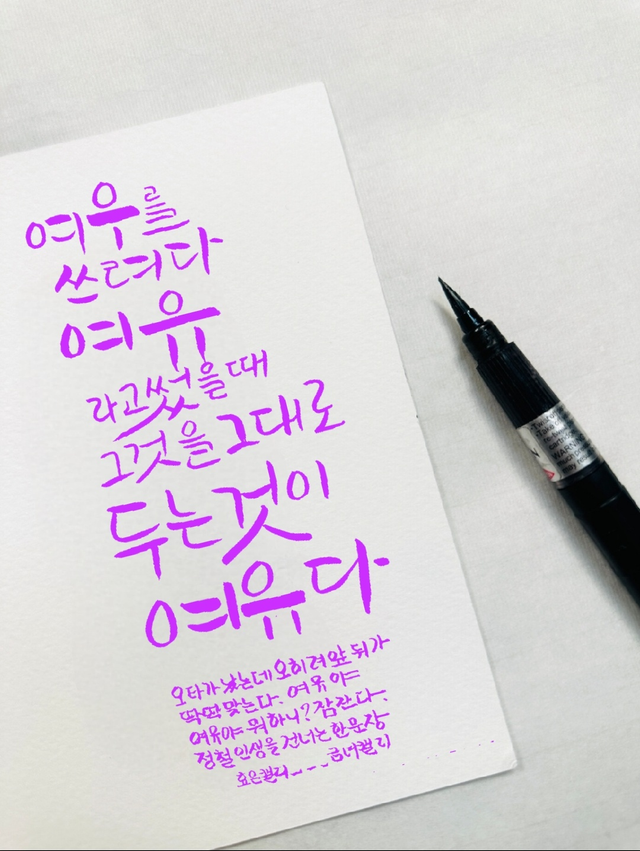 여우를
쓰려다
여유
라고 썼을 때
그것을 그대로
두는 것이
여유다
오타가 났는데 오히려 앞 뒤가
딱딱 맞는다. 여유야
여유야 뭐하니? 잠잔다.
정철 인생을 건너는 한문장
효은캘리 금녀캘리